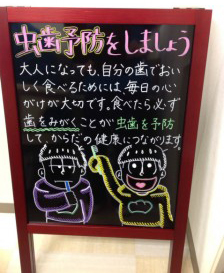 虫歯予防をしましょう
大人になっても、自分の歯でおい
しく食べるためには、毎日の心
がけが大切です。食べたら必ず
歯をみがくことが虫歯を予防
して、からだの健康につながります。